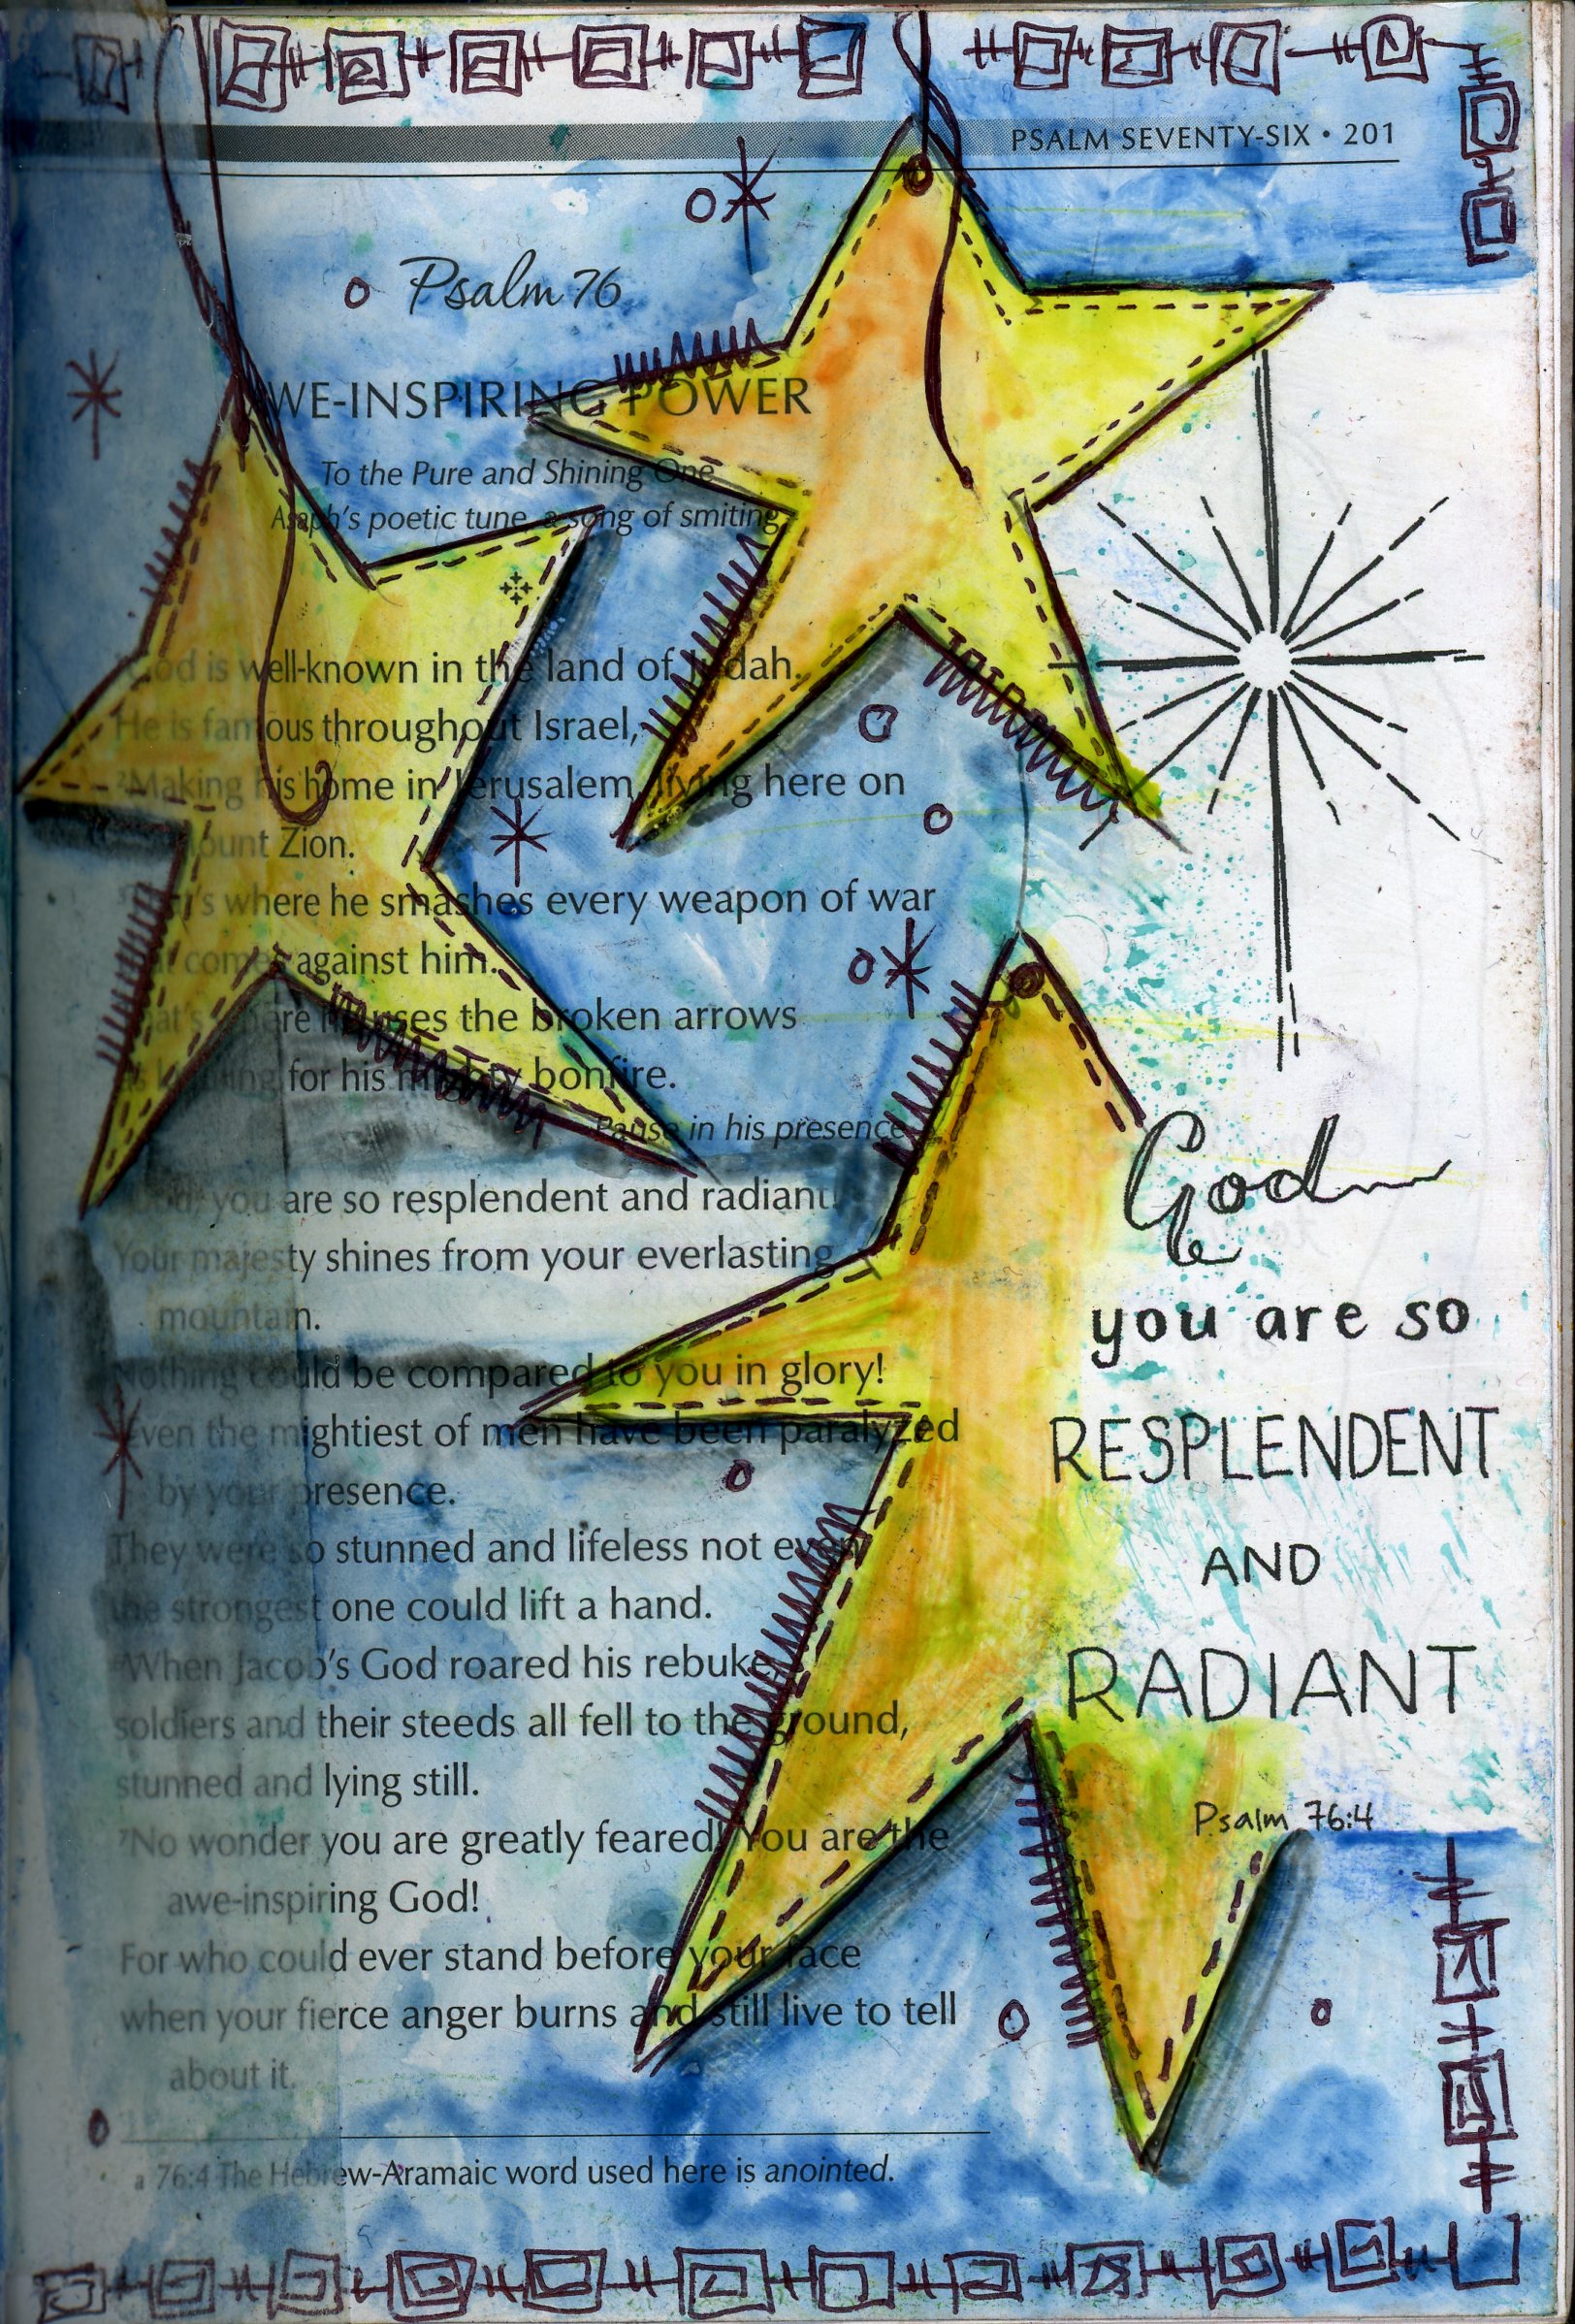 PSALM SEVENTY-SIX • 201
Psalm 76
AWE-INSPIRING POWER
To the Pure and Shining One
Asaph's poetic tune, a song of smiting
God is well-known in the land of Judah.
He is famous throughout Israel,
²Making his home in Jerusalem, living here on
Mount Zion.
where he smashes every weapon of war
that comes against him.
That's where he uses the broken arrows
as kindling for his mighty bonfire.
Pause in his presence
God, you are so resplendent and radiant!
Your majesty shines from your everlasting
mountain.
Nothing could be compared to you in glory!
Even the mightiest of men have been paralyzed
by your presence.
They were so stunned and lifeless not even
the strongest one could lift a hand.
When Jacob's God roared his rebuke
soldiers and their steeds all fell to the ground,
stunned and lying still.
⁷No wonder you are greatly feared! You are the
awe-inspiring God!
For who could ever stand before your face
when your fierce anger burns and still live to tell
about it.
a 76:4 The Hebrew-Aramaic word used here is anointed.
God
you are so
RESPLENDENT
AND
RADIANT
Psalm 76:4